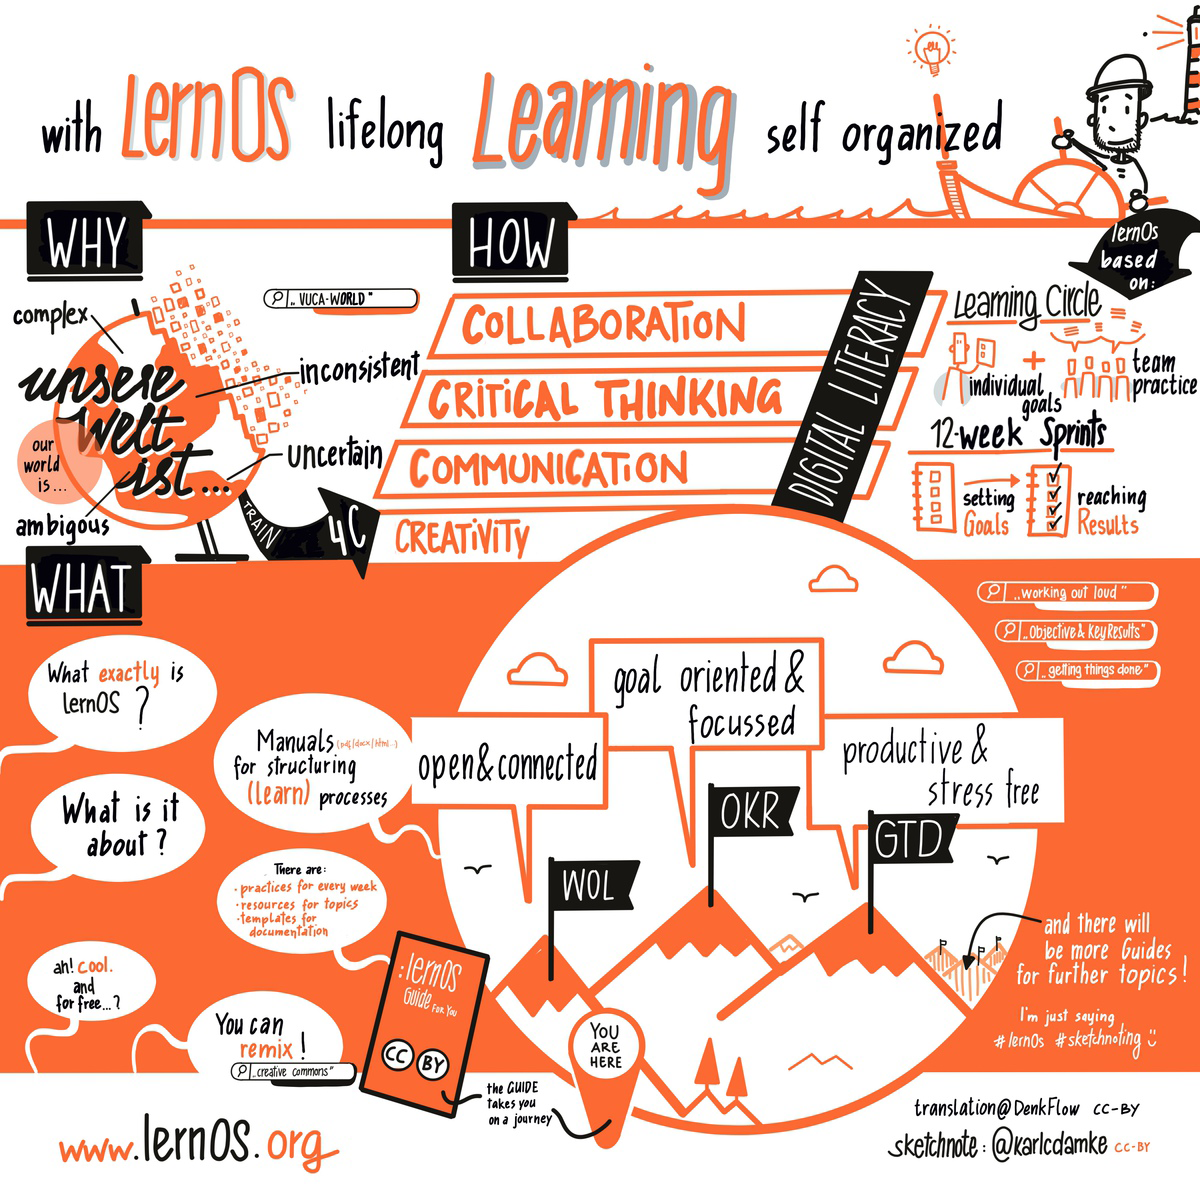 with LernOS lifelong Learning self organized
WHY
complex
„VUCA-WORLD"
inconsistent
unsere
Welt
ist...
our
world
is...
uncertain
ambigous
TRAIN
4C
HOW
COLLABORATION
CRITICAL THINKING
COMMUNICATION
CREATIVITY
DIGITAL LITERACY
lernOs
based
on:
Learning Circle
individual
goals
+
team
practice
12-week Sprints
setting
Goals
reaching
Results
WHAT
What exactly is
lernOS ?
Manuals (pdf/docx/html...)
for structuring
(learn) processes
What is it
about?
There are:
• practices for every week
• resources for topics
• templates for
documentation
ah! cool.
and
for free...?
You can
remix!
„creative commons"
:lernOS
Guide FOR YOU
CC BY
the GUIDE
takes you
on a journey
YOU
ARE
HERE
open & connected
goal oriented &
focussed
productive &
stress free
WOL
OKR
GTD
„working out loud"
„Objective & Key Results"
„getting things done"
and there will
be more Guides
for further topics!
I'm just saying
#lernOs #sketchnoting
www.lernOS.org
translation@DenkFlow CC-BY
sketchnote: @karlcdamke CC-BY